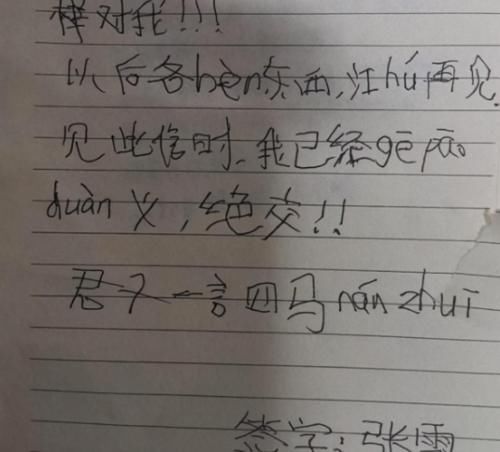 样对我!!!
以后各bèn东西,江hú再见.
见此信时,我已经gē páo
duàn义,绝交!!
君子一言四马nán zhuī
签字:张雪